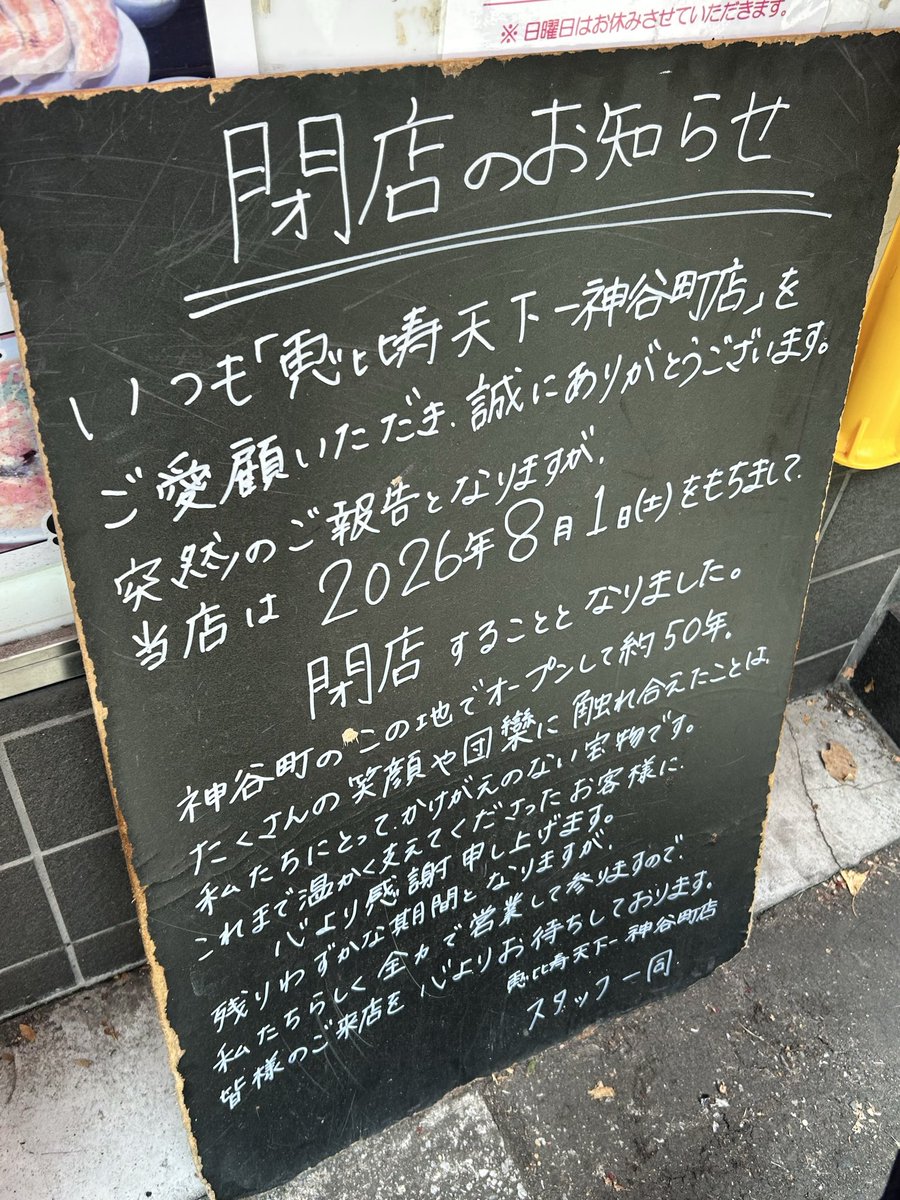 ※ 日曜日はお休みさせていただきます。
閉店のお知らせ
いつも「恵比寿天下一神谷町店」を
ご愛顧いただき、誠にありがとうございます。
突然のご報告となりますが、
当店は 2026年8月1日(土)をもちまして、
閉店することとなりました。
神谷町のこの地でオープンして約50年。
たくさんの笑顔や団欒に触れ合えたことは、
私たちにとって、かけがえのない宝物です。
これまで温かく支えてくださったお客様に、
心より感謝申し上げます。
残りわずかな期間となりますが、
私たちらしく全力で営業して参りますので、
皆様のご来店を心よりお待ちしております。
恵比寿天下一神谷町店
スタッフ一同